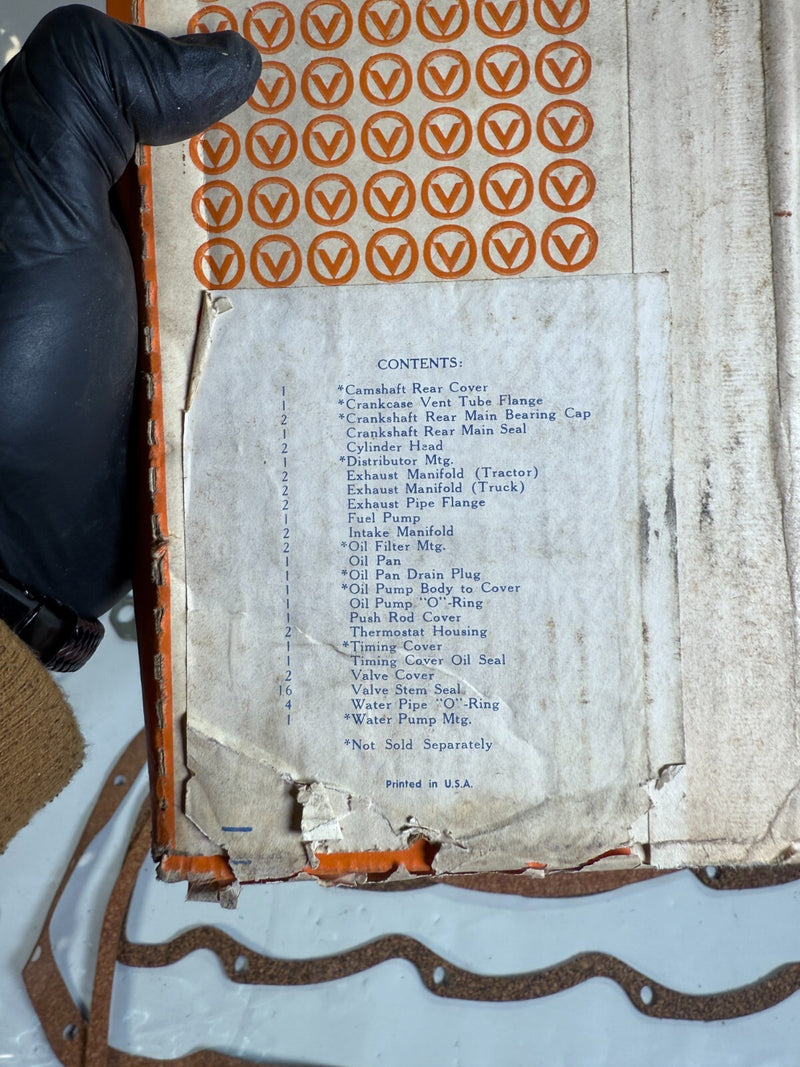 V V V V V V V
V V V V V V
V V V V V V V
V V V V V V V
V V V V V V V
CONTENTS:
1 *Camshaft Rear Cover
1 *Crankcase Vent Tube Flange
2 *Crankshaft Rear Main Bearing Cap
1 Crankshaft Rear Main Seal
2 Cylinder Head
1 *Distributor Mtg.
2 Exhaust Manifold (Tractor)
2 Exhaust Manifold (Truck)
2 Exhaust Pipe Flange
1 Fuel Pump
2 Intake Manifold
2 *Oil Filter Mtg.
1 Oil Pan
1 *Oil Pan Drain Plug
1 *Oil Pump Body to Cover
1 Oil Pump "O"-Ring
1 Push Rod Cover
2 Thermostat Housing
1 *Timing Cover
1 Timing Cover Oil Seal
2 Valve Cover
16 Valve Stem Seal
4 Water Pipe "O"-Ring
1 *Water Pump Mtg.
*Not Sold Separately
Printed in U.S.A.